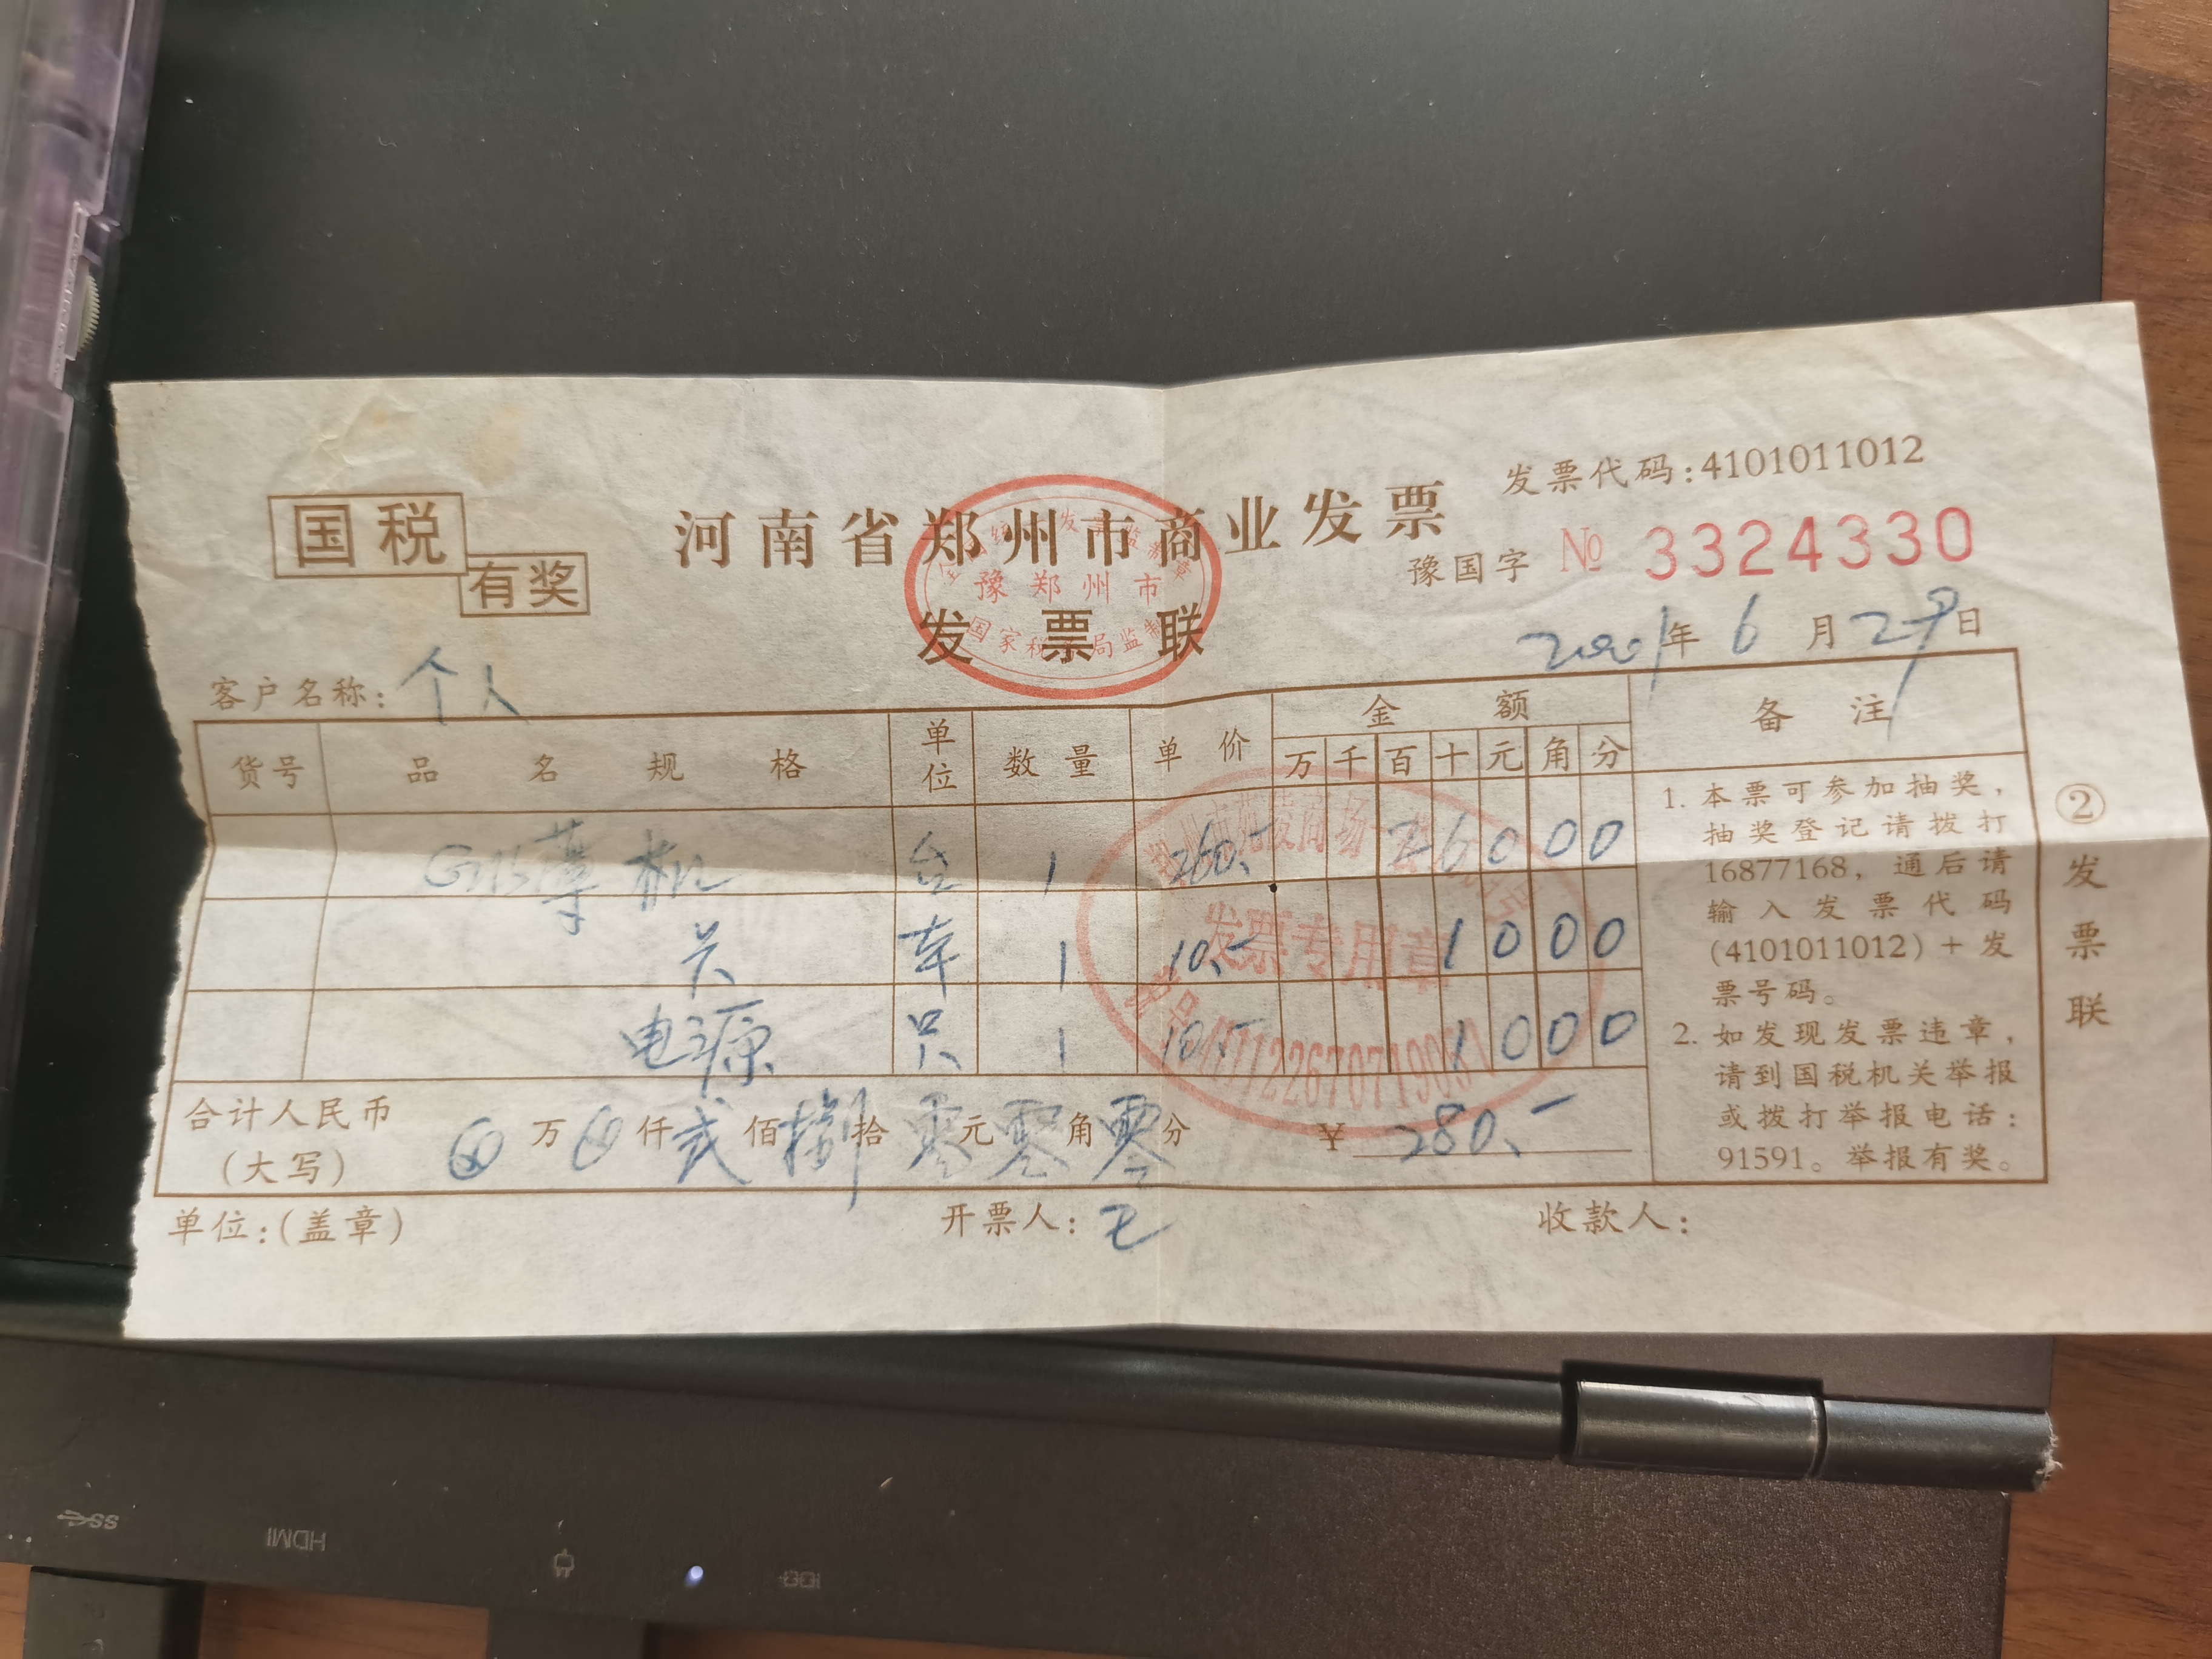 国税
有奖
河南省郑州市商业发票
发票联
豫郑州市
国家税务局监制
发票代码:4101011012
豫国字 № 3324330
2001年6月29日
客户名称: 个人
货号 品名规格 单位 数量 单价 金额 备注
万 千 百 十 元 角 分
机 台 1 260.- 2 6 0 0 0
1 10.- 1 0 0 0
电源 只 1 10.- 1 0 0 0
发票专用章
1. 本票可参加抽奖,
抽奖登记请拨打
16877168, 通后请
输入发票代码
(4101011012)+发
票号码。
2. 如发现发票违章,
请到国税机关举报
或拨打举报电话:
91591。举报有奖。
②发票联
合计人民币
(大写)
万 仟 贰 佰 捌 拾 零 元 零 角 零 分 ¥ 280.-
单位:(盖章)
开票人:
收款人:
SS
HDMI